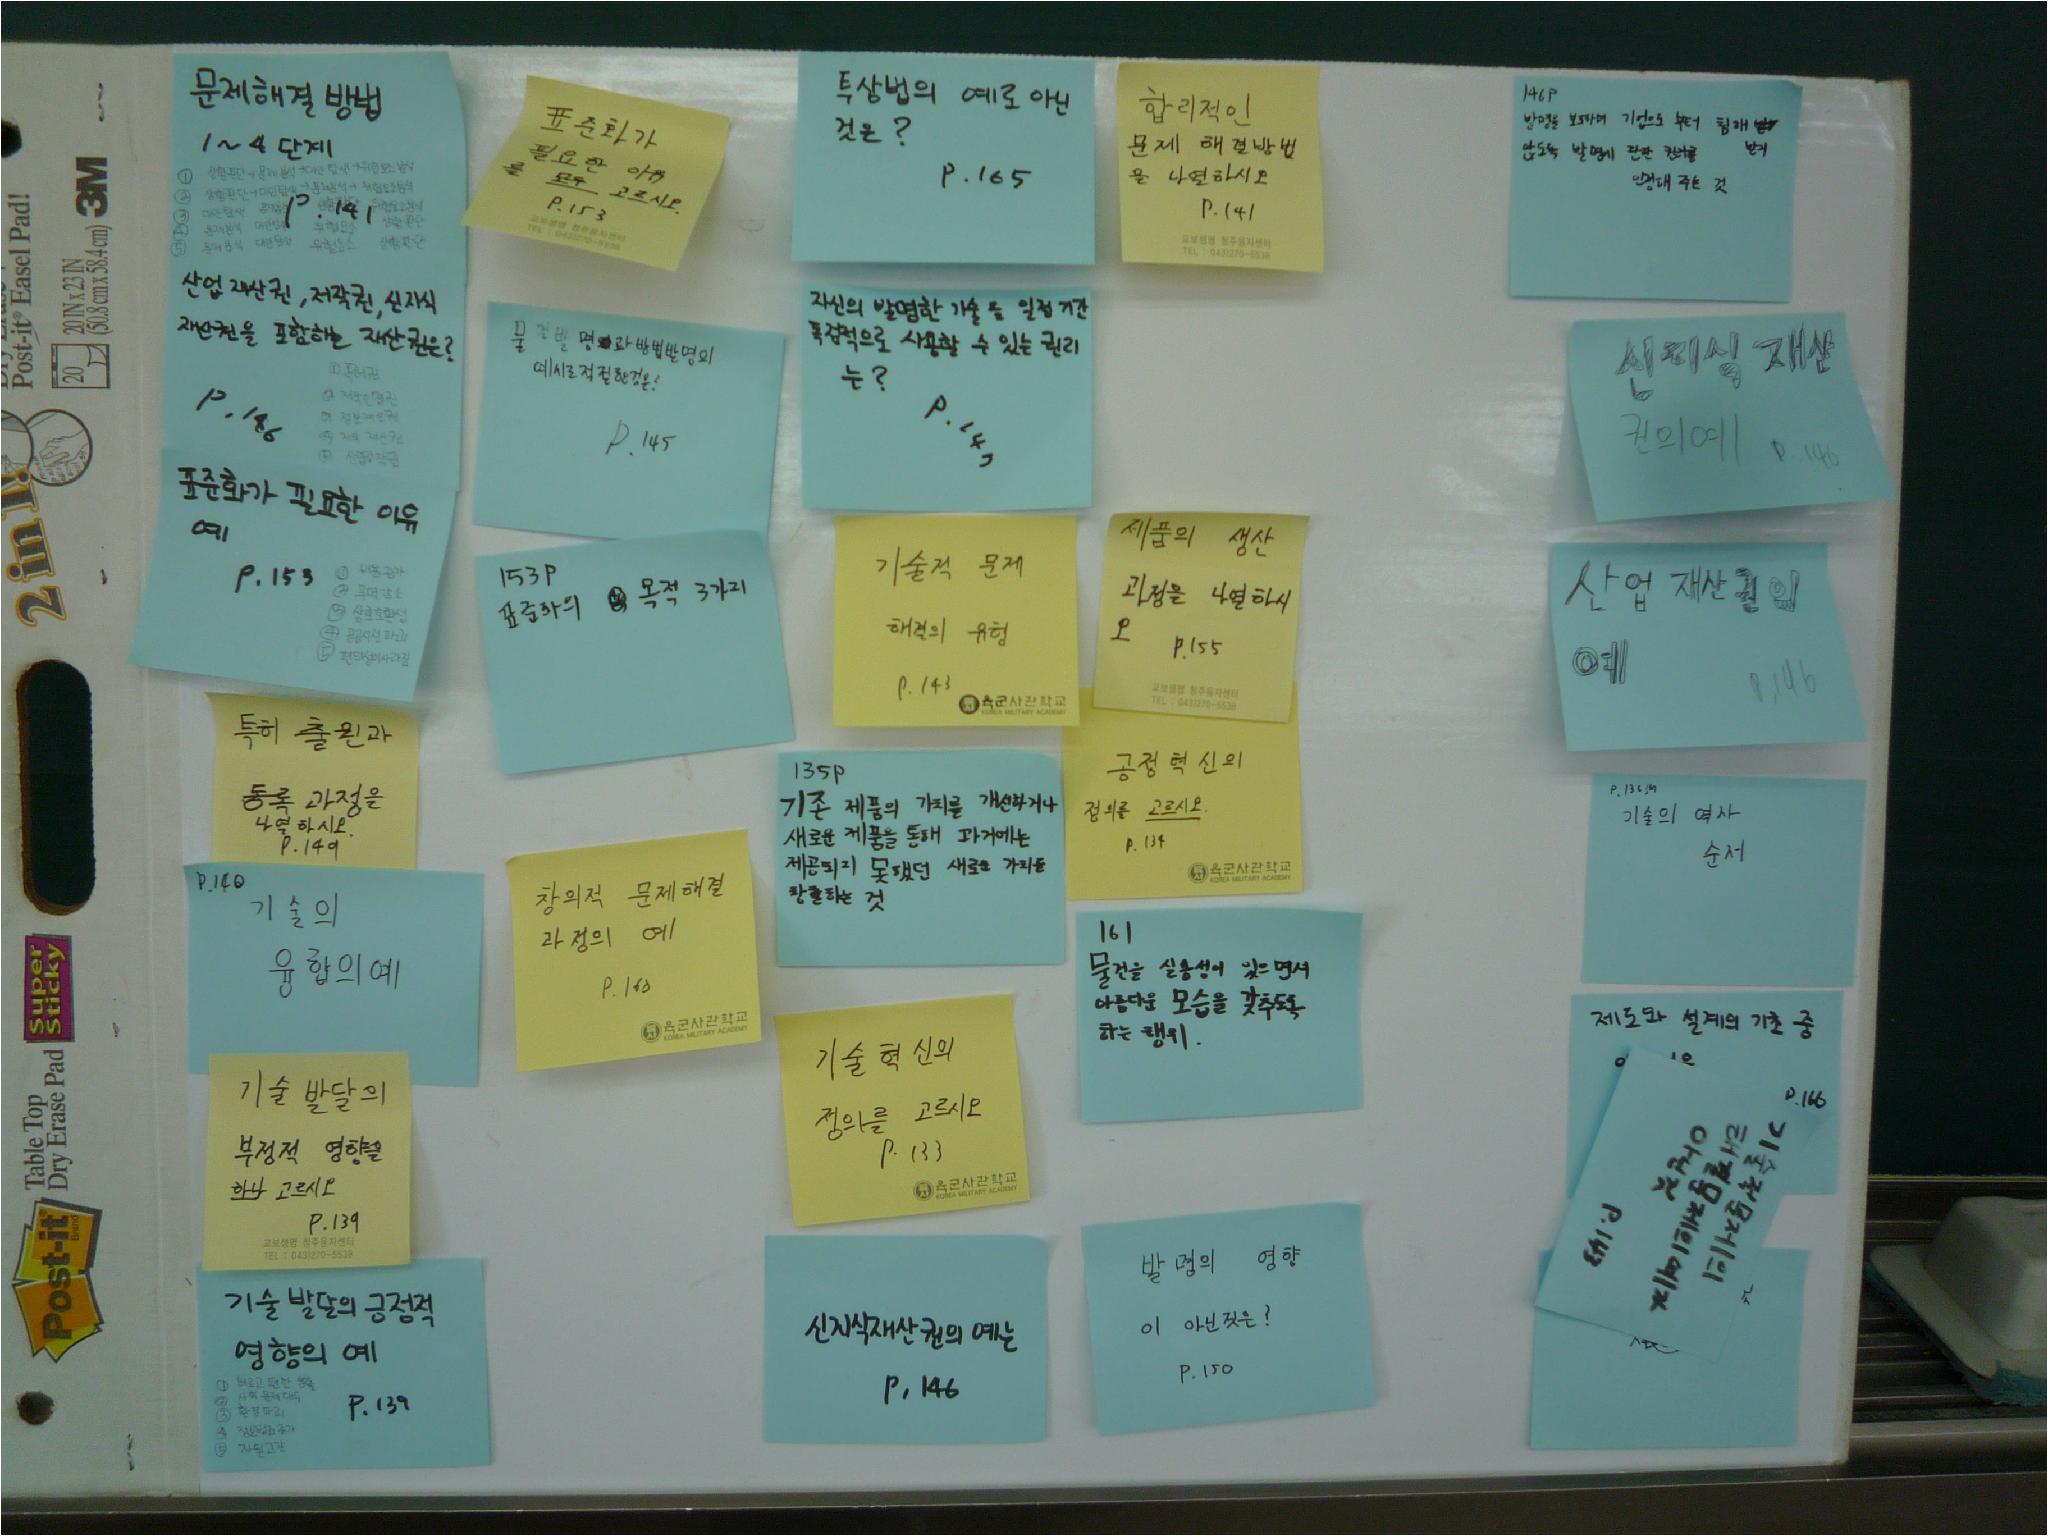 문제해결 방법
1~4 단계
P. 141
산업 재산권, 저작권, 신지식
재산권을 포함하는 재산권은?
P. 146
표준화가 필요한 이유
예
P. 153
특허 출원과
등록 과정을
나열 하시오.
P. 149
P.140
기술의
융합의 예
기술 발달의
부정적 영향을
고르시오
P.139
교보생명 청주융자센터
TEL : 043)270-5538
기술 발달의 긍정적
영향의 예
P. 139
표준화가
필요한 이유
를 모두 고르시오.
P.153
교보생명 청주융자센터
TEL : 043)270-5538
물건발명과 방법발명의
예시로 적절한것은?
P. 145
153P
표준화의 목적 3가지
창의적 문제해결
과정의 예
육군사관학교
KOREA MILITARY ACADEMY
투상법의 예로 아닌
것은?
P. 165
자신의 발명한 기술을 일정 기간
독점적으로 사용할 수 있는 권리
는?
기술적 문제
해결의 유형
P. 143
육군사관학교
KOREA MILITARY ACADEMY
135P
기존 제품의 가치를 개선하거나
새로운 제품을 통해 과거에는
제공되지 못했던 새로운 가치를
창출하는 것
기술 혁신의
정의를 고르시오
P. 133
육군사관학교
KOREA MILITARY ACADEMY
신지식재산권의 예는
P. 146
합리적인
문제 해결방법
을 나열하시오
P. 141
교보생명 청주융자센터
TEL : 043)270-5538
제품의 생산
과정을 나열하시
오
P.155
교보생명 청주융자센터
TEL : 043)270-5538
공정혁신의
정의를 고르시오.
육군사관학교
KOREA MILITARY ACADEMY
161
물건을 실용성이 있으면서
아름다운 모습을 갖추도록
하는 행위.
발명의 영향
이 아닌것은?
P. 150
146P
발명을 기업으로 부터 침해 받지
않도록 발명에 관한 권리를
인정해 주는 것
신지식 재산
권의예 P. 146
산업 재산권의
예 P. 146
기술의 역사
순서
제도와 설계의 기초 중
P.166
기술적문제의
해결문제의예가
아닌것
P. 143
Post-it® Easel Pad!
20 IN x 23 IN
(50.8 cm x 58.4 cm)
3M
20
2 in 1!
Super
Sticky
Table Top
Dry Erase Pad
Post-it